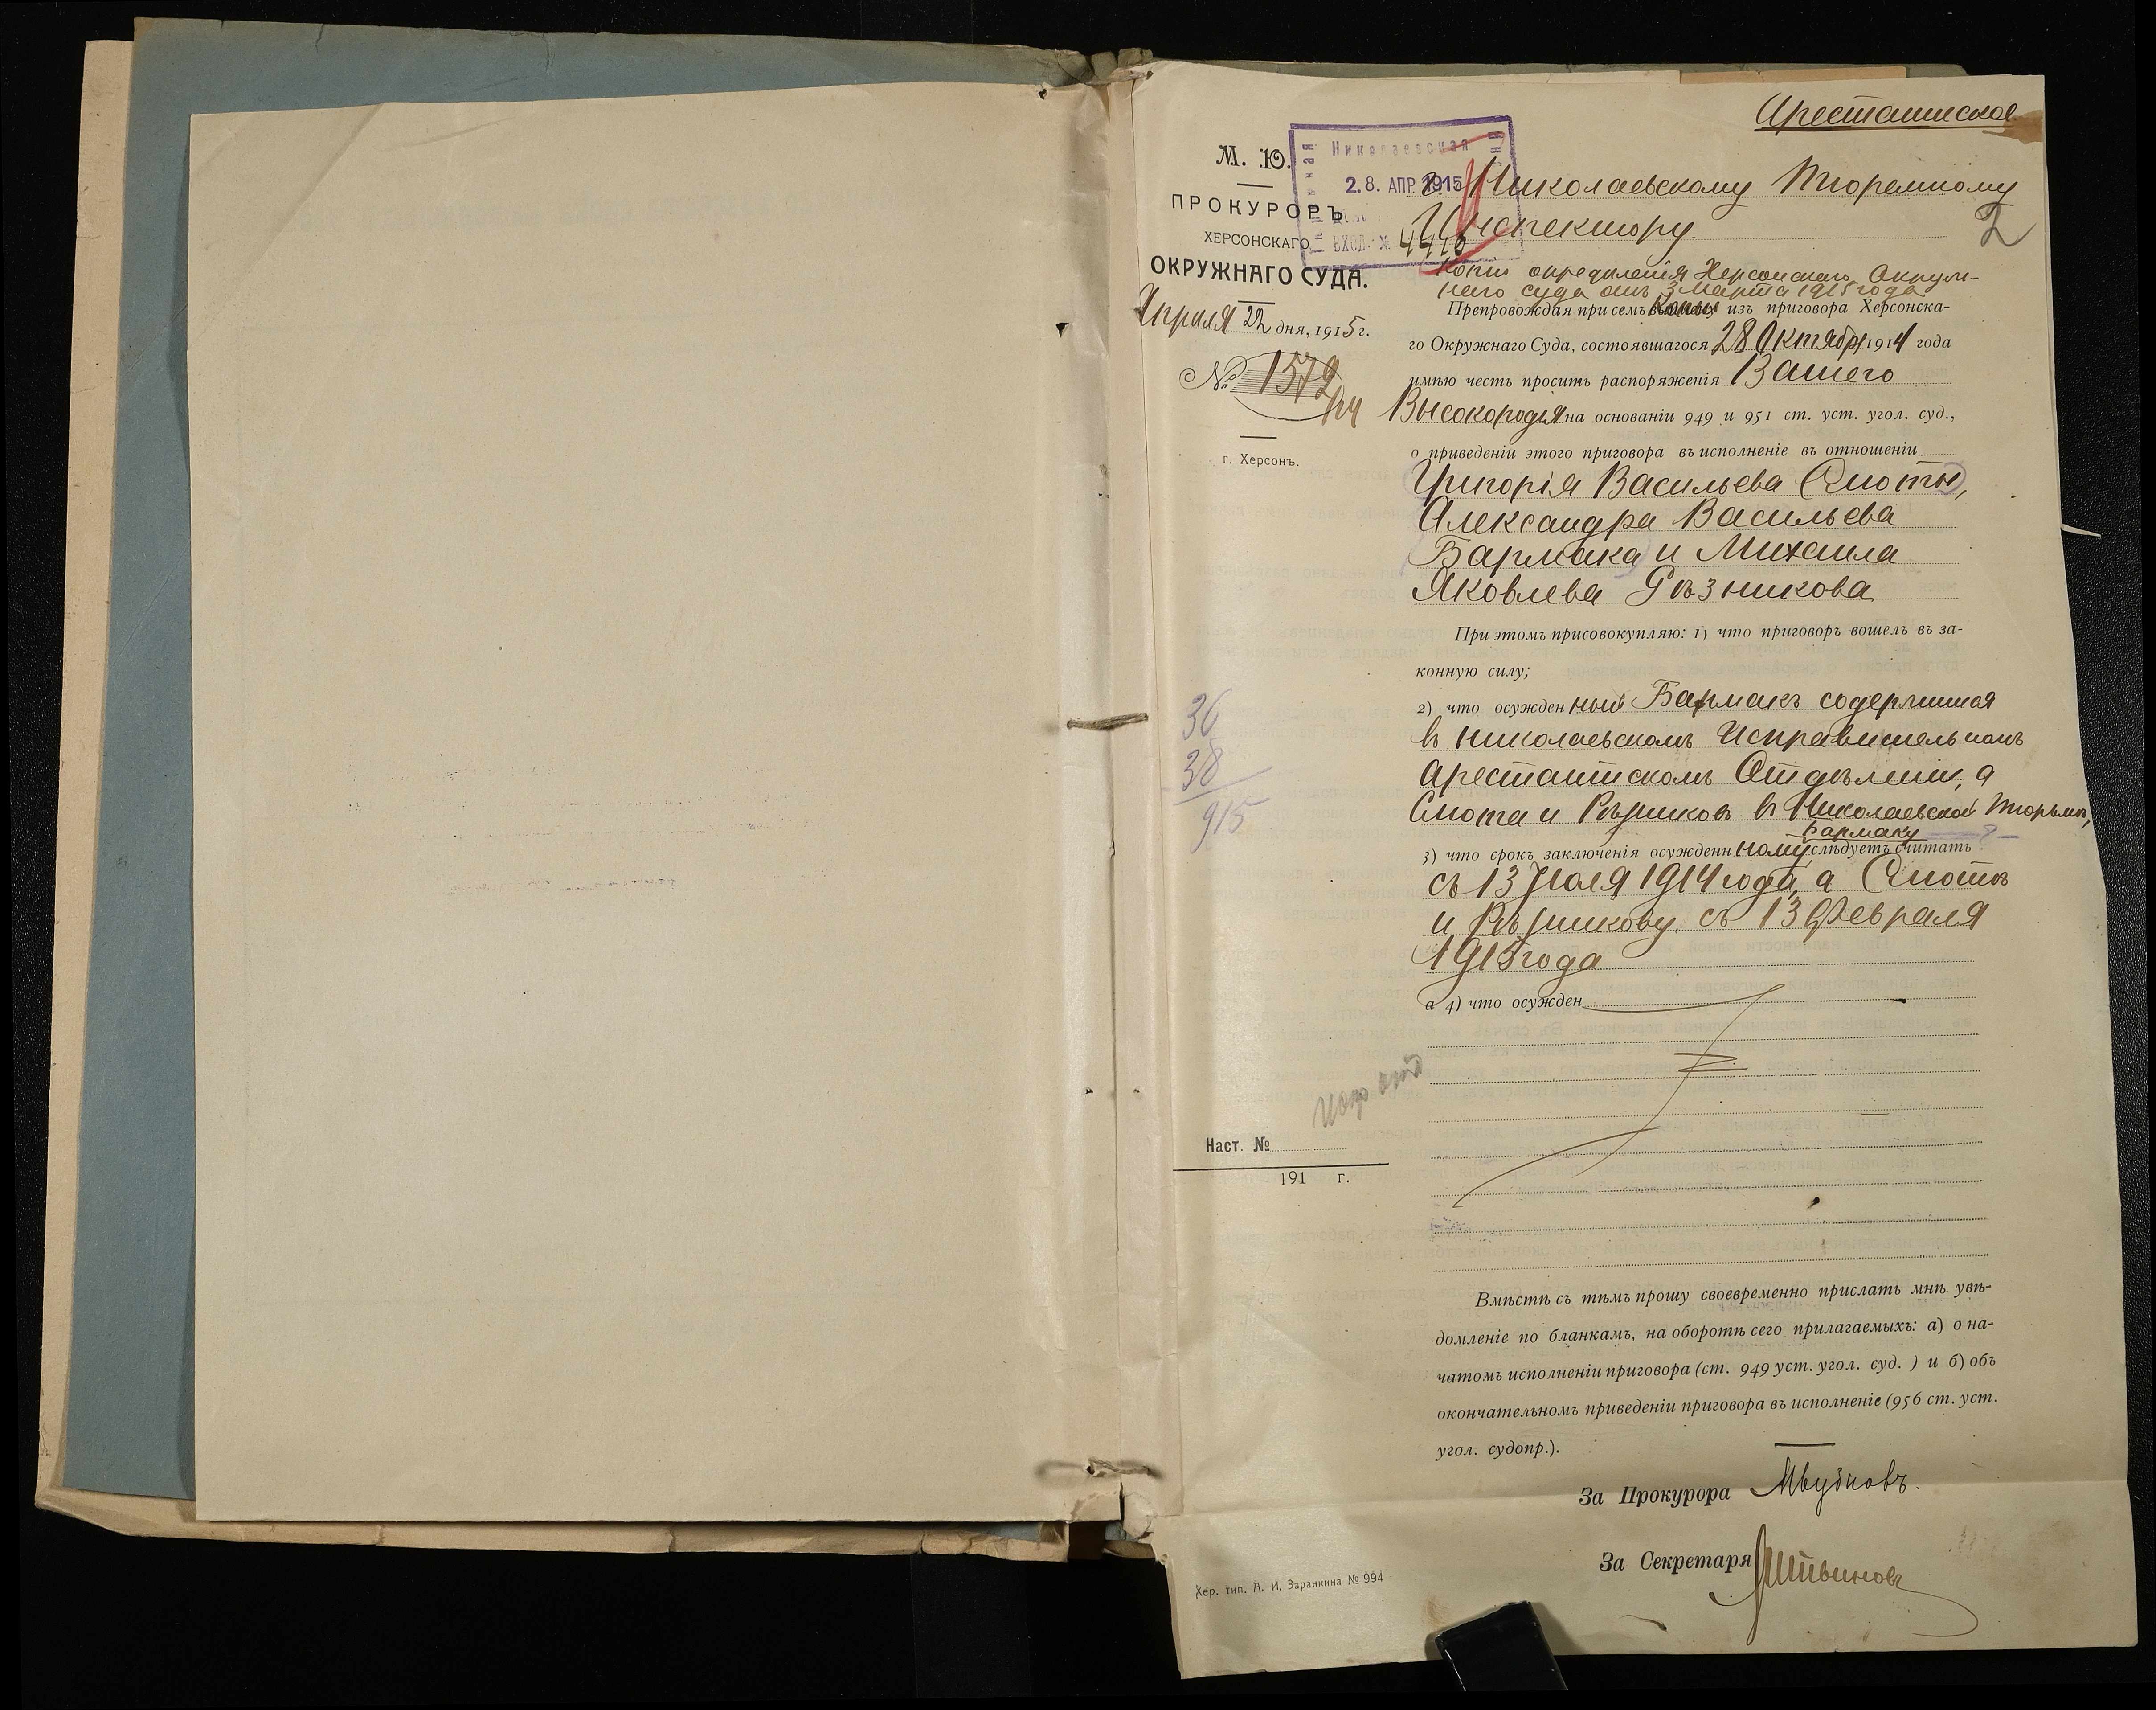 Арестантское
2
М. Ю.
ПРОКУРОРЪ
ХЕРСОНСКАГО
ОКРУЖНАГО СУДА.
Апреля 22 дня, 1915 г.
№ 1572
г. Херсонъ.
Николаевская
28. АПР. 1915
ВХОД. №
Николаевскому Тюремному
Инспектору
копiи опредѣленiя Херсонскаго Окруж-
наго суда отъ 3 Марта 1915 года
Препровождая при семъ изъ приговора Херсонска-
го Окружнаго Суда, состоявшагося 28 Октября 1914 года
имѣю честь просить распоряженія Вашего
Высокородія на основаніи 949 и 951 ст. уст. угол. суд.,
о приведеніи этого приговора въ исполненіе въ отношеніи
Григорія Васильева Сиоты,
Александра Васильева
Бармака и Михаила
Яковлева Рѣзникова
При этомъ присовокупляю: 1) что приговоръ вошелъ въ за-
конную силу;
2) что осужденный Бармакъ содержится
въ Николаевскомъ Исправительномъ
Арестантскомъ Отдѣленiи, а
Сиота и Рѣзниковъ въ Николаевской Тюрьмѣ,
Бармаку
3) что срокъ заключенія осужденному слѣдуетъ считать
съ 13 Июля 1914 года, а Сиотѣ
и Рѣзникову съ 13 Февраля
1915 года
а 4) что осужден
36
38
915
Наст. №
191 г.
Вмѣстѣ съ тѣмъ прошу своевременно прислать мнѣ увѣ-
домленіе по бланкамъ, на оборотѣ сего прилагаемыхъ: а) о на-
чатомъ исполненіи приговора (ст. 949 уст. угол. суд.) и б) объ
окончательномъ приведеніи приговора въ исполненіе (956 ст. уст.
угол. судопр.).
За Прокурора
За Секретаря
Хер. тип. А. И. Заранкина № 994